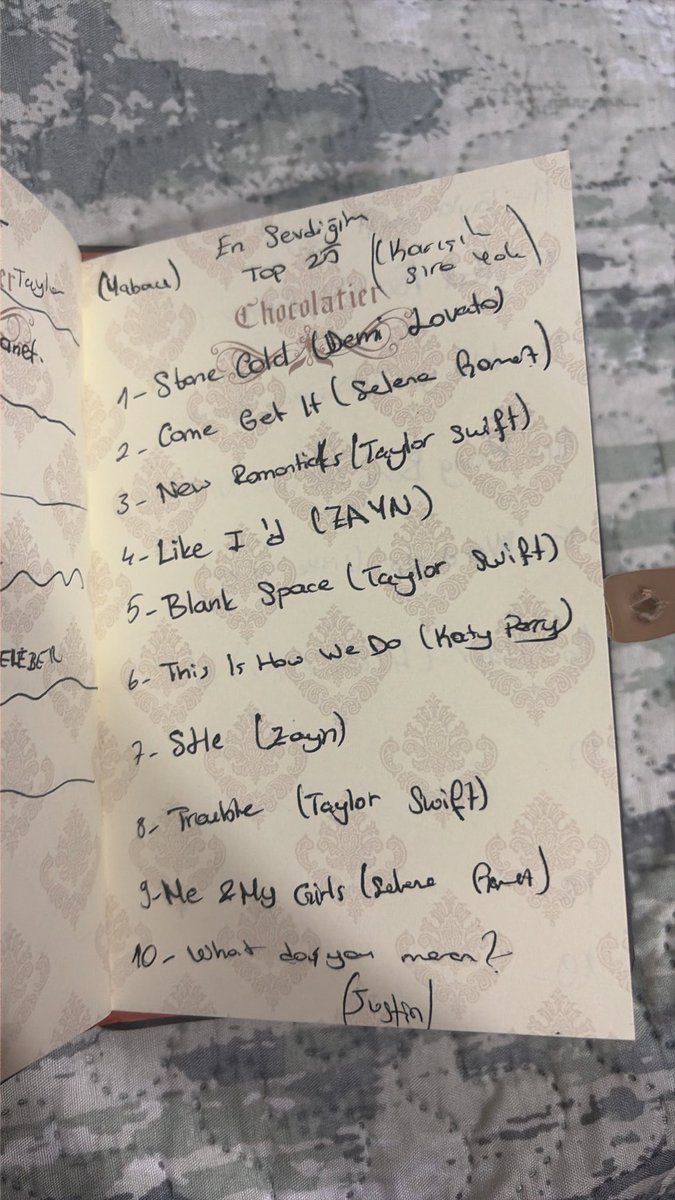 Taylor
anet.
ELEBER
En Sevdiğim
(Yabancı) Top 25 (Karışık
sıra yok)
Chocolatier
1- Stone Cold (Demi Lovato)
2- Come Get It (Selena Gomez)
3- New Romanticks (Taylor Swift)
4- Like I'd (ZAYN)
5- Blank Space (Taylor Swift)
6- This Is How We Do (Katy Perry)
7- SHe (Zayn)
8- Trouble (Taylor Swift)
9- Me & My Girls (Selena Gomez)
10- What do you mean?
(Justin)